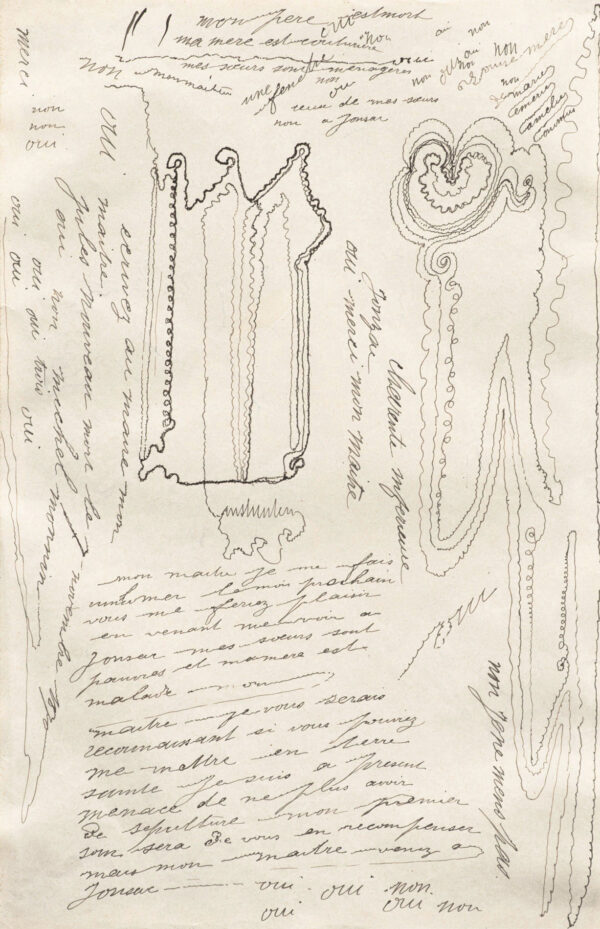 mon pere est mort
ma mere est couturiere
non
mes sœurs sont menageres
oui
non
oui
une
non
oui
ceux de mes sœurs
non a Jonsac
oui
non
non
oui
non
non
mere
non
marie
emerie
amelie
merci
non
non
oui
oui
ecrivez au maire mon
maitre
jules nuveau mort le
7 novembre
oui non michel monnin
oui oui trois oui
oui oui
Jonzac charente inferieure
oui merci mon maitre
mon maitre je me fais
inhumer le mois prochain
vous me feriez plaisir
en venant me voir a
Jonsac mes sœurs sont
pauvres et ma mere est
malade mon
maitre je vous serais
reconnaissant si vous pouvez
me mettre en terre
sainte je suis a present
menace de ne plus avoir
de sepulture mon premier
soin sera de vous en recompenser
mais mon maitre venez a
Jonsac oui oui non
oui oui non
non je ne mens pas